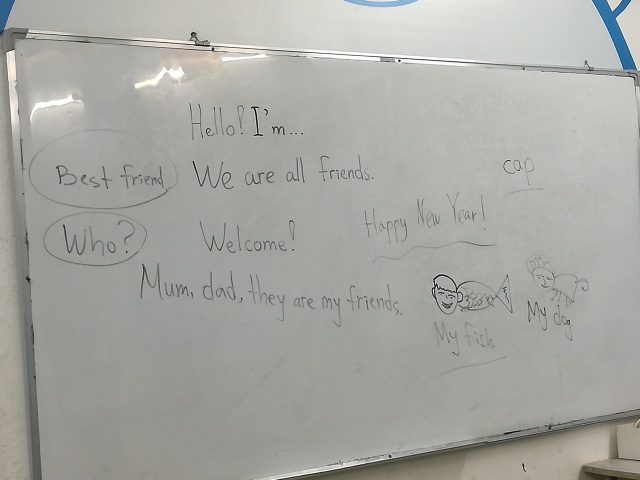 Hello! I'm...
Best friend
We are all friends.
cap
Who?
Welcome!
Happy New Year!
Mum, dad, they are my friends.
My fish
My dog